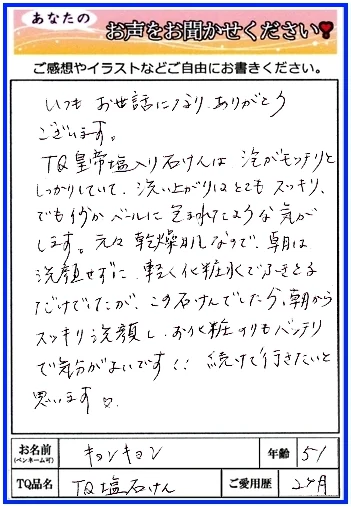 あなたの
お声をお聞かせください❣
ご感想やイラストなどご自由にお書きください。
いつも お世話になり、ありがとう
ございます。
TQ皇帝塩入り石けんは 泡がモッチリと
しっかりしていて、洗い上がりはとても スッキリ、
でも何か ベールに 包まれたような 気が
します。元々 乾燥肌なので、朝は
洗顔せずに 軽く 化粧水でふきとる
だけでしたが、この石けんでしたら、朝から
スッキリ洗顔し、お化粧のりもバッチリ
で気分がよいです!! 続けて行きたいと
思います♡.
お名前 キョンキョン 年齢 51
(ペンネーム可)
TQ品名 TQ塩石けん ご愛用歴 2ヶ月